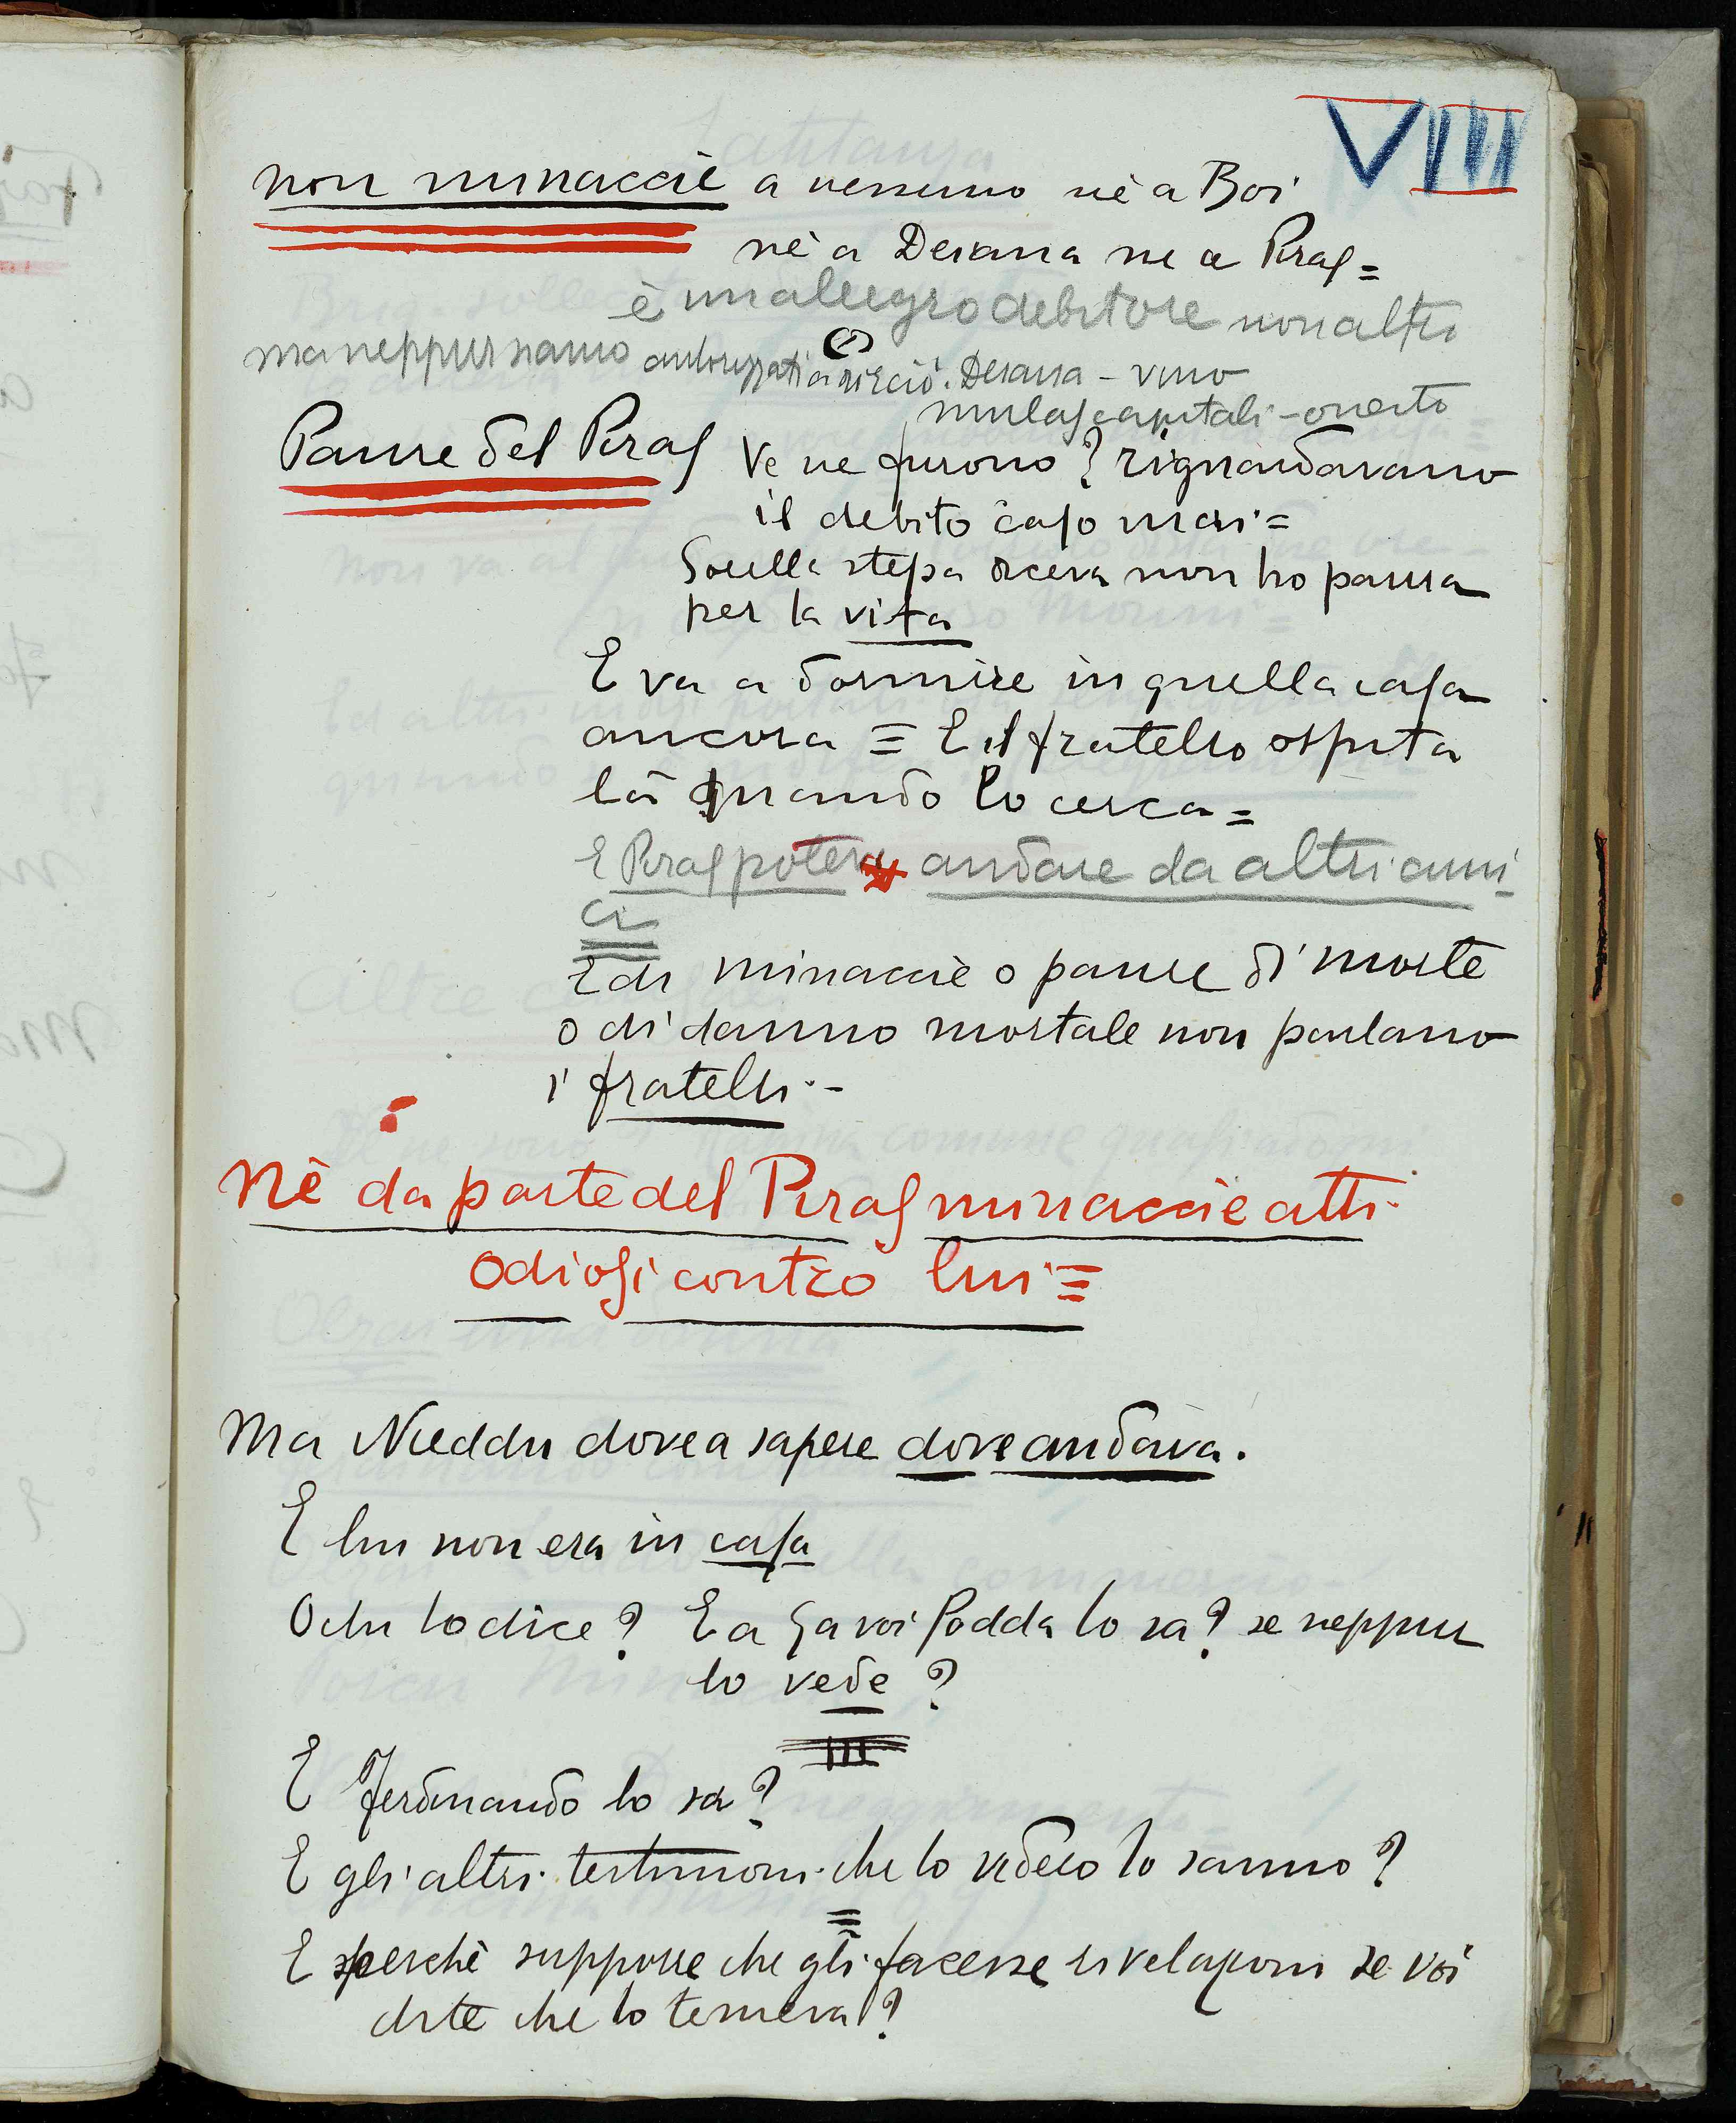 VIIII
non minaccie a nessuno nè a Boi
nè a Deiana ne a Piras =
è un allegro debitore non altri
ma neppur siamo autorizzati a dir ciò. Deiana - vino
mulas capitali - onesto
Paure del Piras Ve ne furono? riguardavano
il debito caso mai =
Souella stessa diceva non ho paura
per la vita
E va a dormire in quella casa
ancora = E il fratello ospita
là quando lo cerca =
E Piras poteva andare da altri ami
ci
E di minaccie o paure di morte
o di danno mortale non parlano
i fratelli. -
Nè da parte del Piras minaccie atti
odiosi contro lui =
Ma Nieddu dovea sapere dove andava.
E lui non era in casa
O chi lo dice? E a Gavoi Podda lo sa? se neppur
lo vede?
E Ferdinando lo sa?
E gli altri testimoni che lo videro lo sanno?
E perchè suppose che gli facesse rivelazioni se voi
dite che lo temeva?